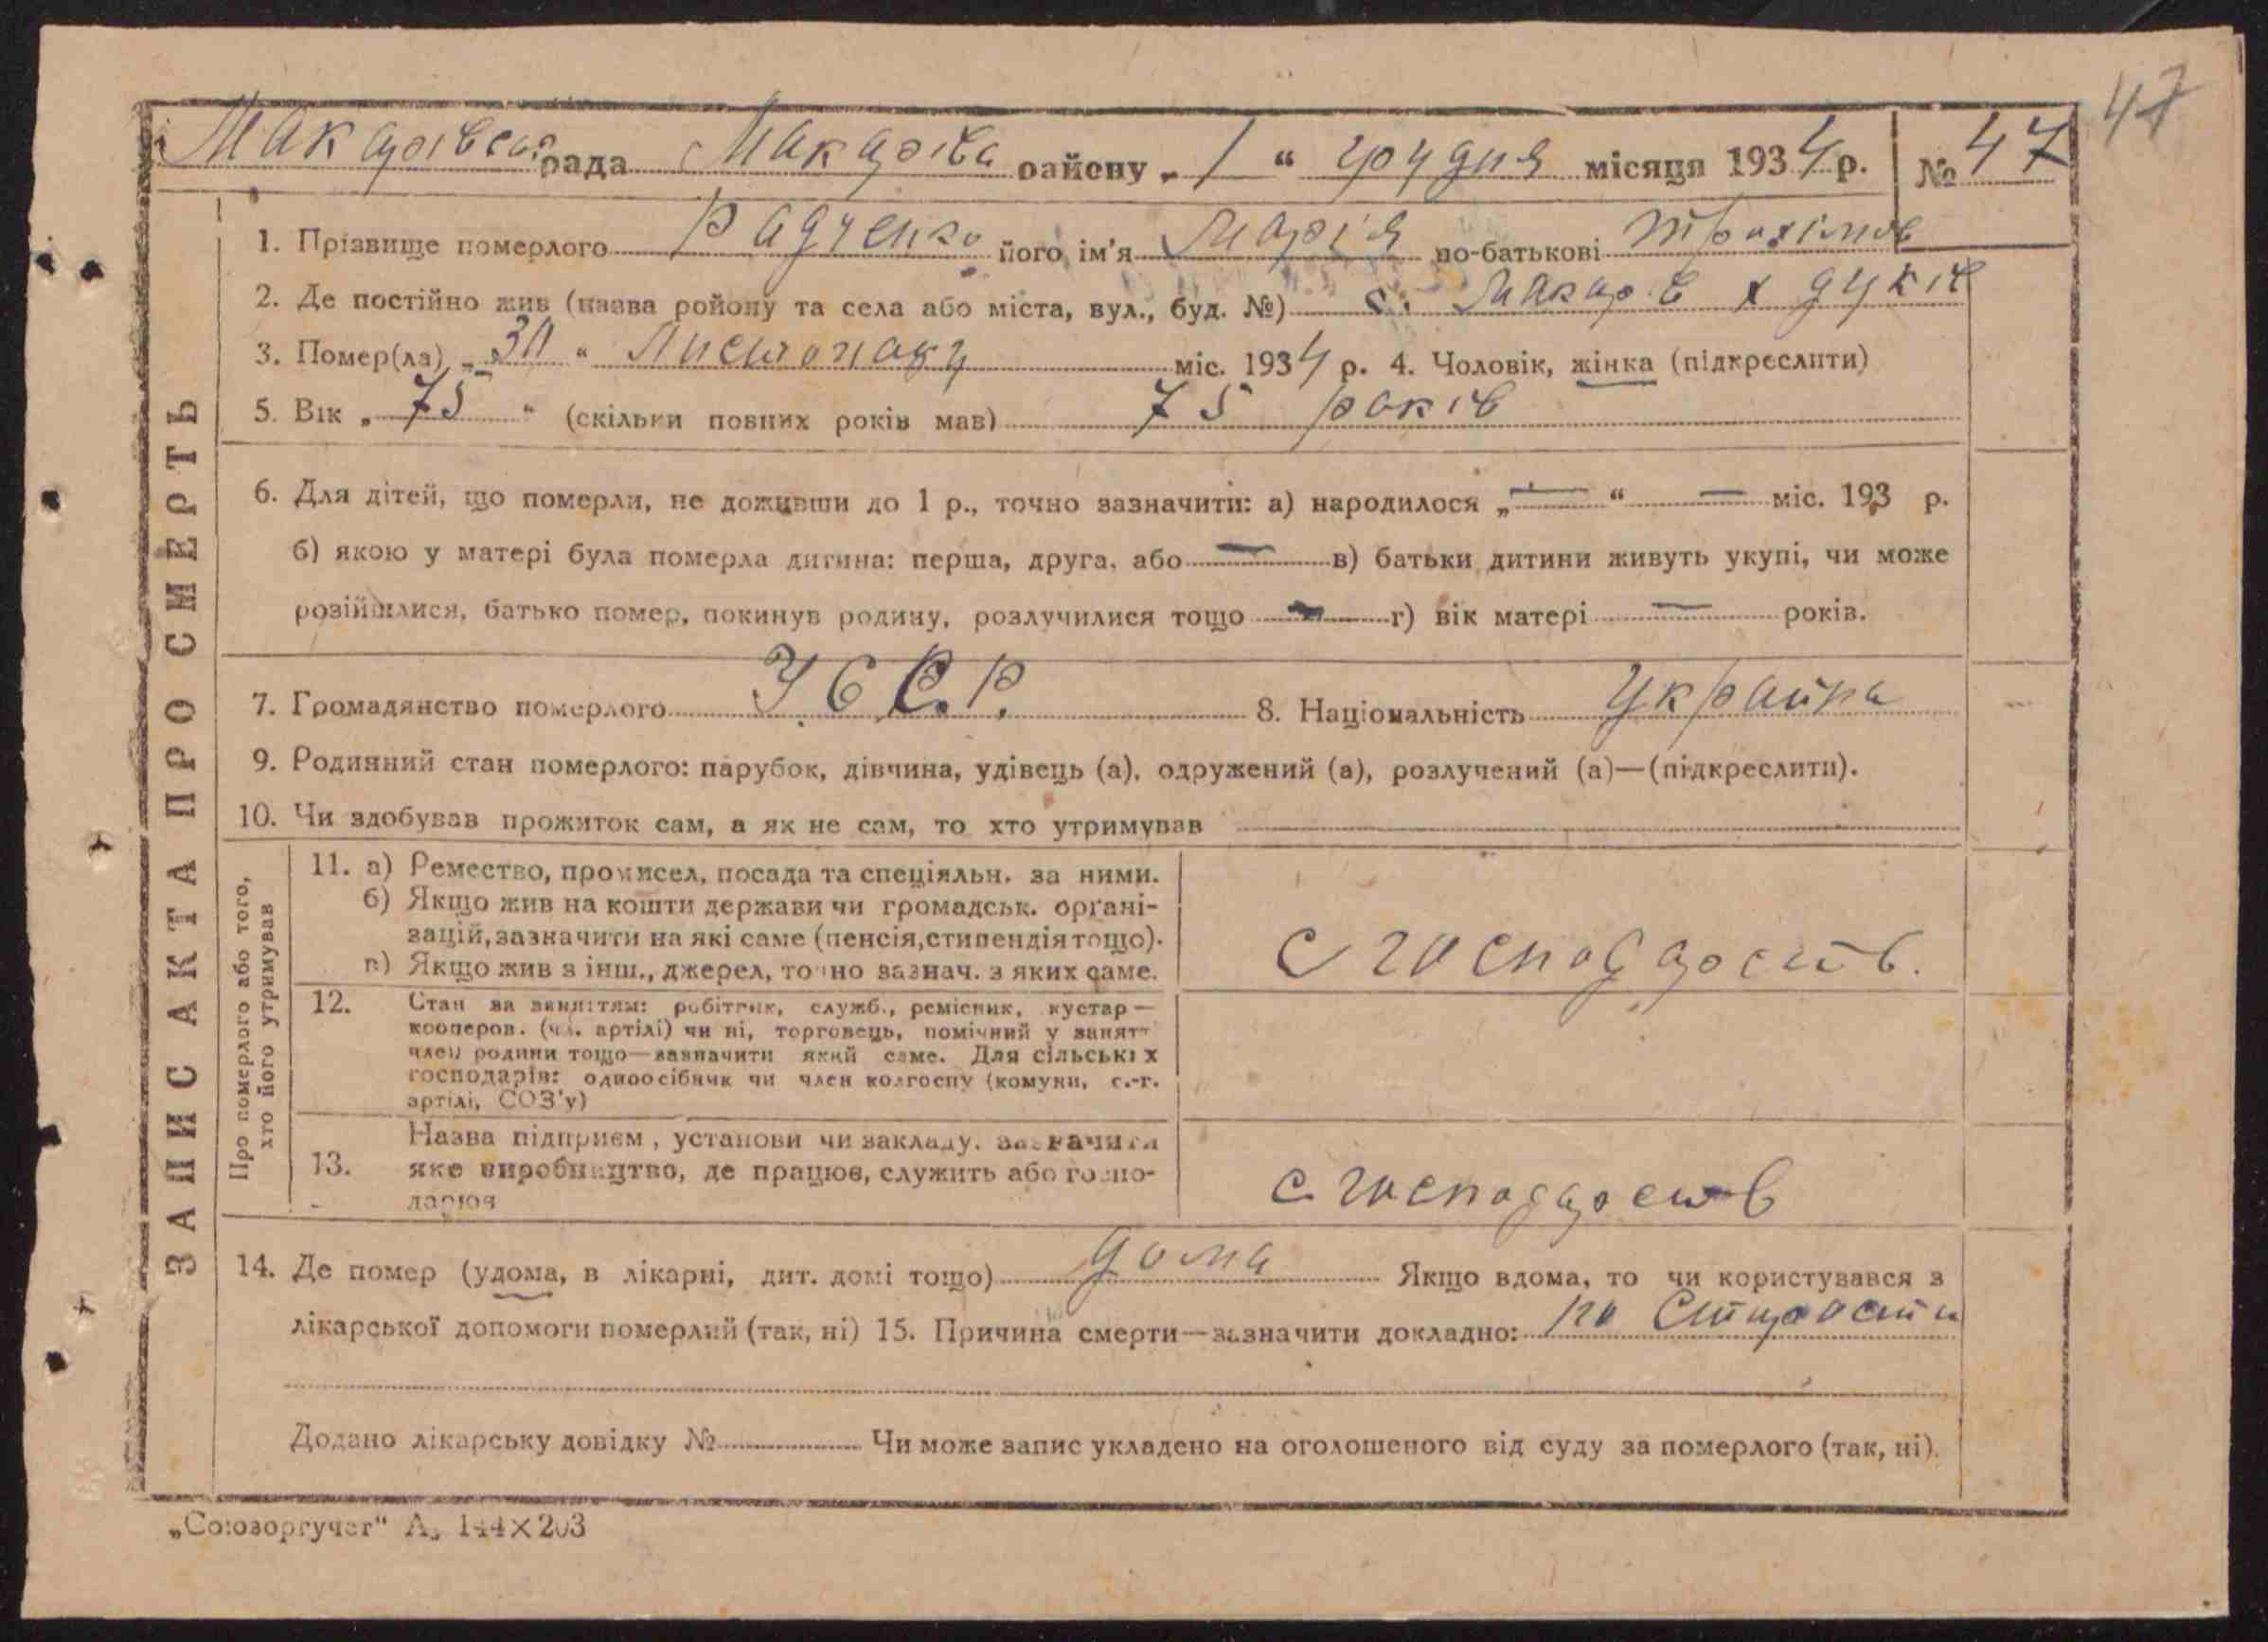 47
Макарівська рада Макарівс району „1“ грудня місяця 1934 р. № 47
ЗАПИС АКТА ПРО СМЕРТЬ
1. Прізвище померлого Радченко його ім'я Марія по-батькові Трохімов
2. Де постійно жив (назва ройону та села або міста, вул., буд. №) с. Макарів х
3. Помер(ла) „30“ Листопаду міс. 1934 р. 4. Чоловік, жінка (підкреслити)
5. Вік „75“ (скільки повних років мав) 75 років
6. Для дітей, що померли, не доживши до 1 р., точно зазначити: а) народилося „—“ — міс. 193 р.
б) якою у матері була померла дитина: перша, друга, або — в) батьки дитини живуть укупі, чи може
розійшлися, батько помер, покинув родину, розлучилися тощо — г) вік матері — років.
7. Громадянство померлого У С Р.Р. 8. Національність Україна
9. Родинний стан померлого: парубок, дівчина, удівець (а), одружений (а), розлучений (а)—(підкреслити).
10. Чи здобував прожиток сам, а як не сам, то хто утримував
Про померлого або того,
хто його утримував
11. а) Ремество, промисел, посада та спеціяльн. за ними.
б) Якщо жив на кошти держави чи громадськ. органі-
зацій, зазначити на які саме (пенсія, стипендія тощо).
в) Якщо жив з інш., джерел, точно зазнач. з яких саме.
с господарств.
12. Стан за заняттям: робітник, служб., ремісник, кустар—
кооперов. (чл. артілі) чи ні, торговець, помічний у занятт
член родини тощо—зазначити який саме. Для сільських
господарів: одноосібник чи член колгоспу (комуни, с.-г.
артілі, СОЗ'у)
13. Назва підприєм, установи чи закладу, зазначити
яке виробництво, де працює, служить або госпо-
дарює
с господарств
14. Де помер (удома, в лікарні, дит. домі тощо) дома Якщо вдома, то чи користувався з
лікарської допомоги померлий (так, ні) 15. Причина смерти—зазначити докладно: по Старости
Додано лікарську довідку № Чи може запис укладено на оголошеного від суду за померлого (так, ні).
„Союзоргучет“ А₅ 144×203